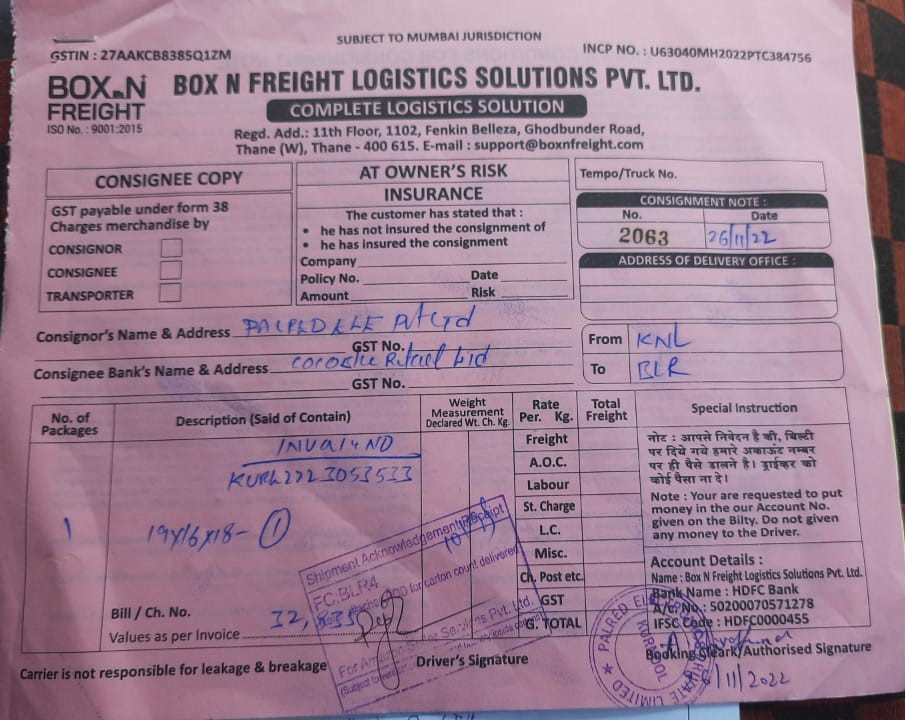 SUBJECT TO MUMBAI JURISDICTION
GSTIN : 27AAKCB8385Q1ZM
INCP NO. : U63040MH2022PTC384756
BOX N FREIGHT
ISO No. : 9001:2015
BOX N FREIGHT LOGISTICS SOLUTIONS PVT. LTD.
COMPLETE LOGISTICS SOLUTION
Regd. Add.: 11th Floor, 1102, Fenkin Belleza, Ghodbunder Road,
Thane (W), Thane - 400 615. E-mail : support@boxnfreight.com
CONSIGNEE COPY
GST payable under form 38
Charges merchandise by
CONSIGNOR
CONSIGNEE
TRANSPORTER
AT OWNER'S RISK
INSURANCE
The customer has stated that :
• he has not insured the consignment of
• he has insured the consignment
Company
Policy No. Date
Amount Risk
Tempo/Truck No.
CONSIGNMENT NOTE :
No. Date
2063 26/11/22
ADDRESS OF DELIVERY OFFICE :
Consignor's Name & Address Pvt Ltd
GST No.
Consignee Bank's Name & Address Ltd
GST No.
From KNL
To BLR
No. of Packages
Description (Said of Contain)
Weight Measurement
Declared Wt. Ch. Kg.
Rate Per. Kg.
Total Freight
Special Instruction
KURL2223053533
1
19x16x18- 1
Freight
A.O.C.
Labour
St. Charge
L.C.
Misc.
Ch. Post etc.
GST
G. TOTAL
नोट : आपसे निवेदन है की, बिल्टी
पर दिये गये हमारे अकाऊंट नम्बर
पर ही पैसे डालने है। ड्राईवर को
कोई पैसा ना दे।
Note : Your are requested to put
money in the our Account No.
given on the Bilty. Do not given
any money to the Driver.
Account Details :
Name : Box N Freight Logistics Solutions Pvt. Ltd.
Bank Name : HDFC Bank
A/c No. : 50200070571278
IFSC Code : HDFC0000455
Shipment Acknowledgement Receipt
FC:BLR4
POD for carton count delivered
Services Pvt. Ltd.
Bill / Ch. No.
Values as per Invoice 32,835
PALRED
PRIVATE LIMITED
KURNOOL
Carrier is not responsible for leakage & breakage
Driver's Signature
Booking Cleark/Authorised Signature
/11/2022